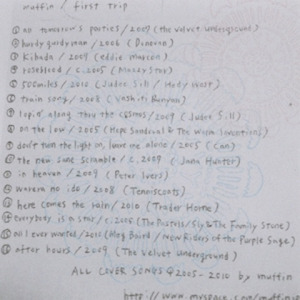 muffin / first trip
① all tomorrow's parties / 2009 (the velvet underground)
② hurdy gurdy man / 2006 (Donovan)
③ Kibada / 2009 (eddie marcon)
④ roseblood / c.2005 (Mazzy Star)
⑤ 500miles / 2010 (Judee Sill / Hedy West)
⑥ train song / 2008 (Vashti Bunyan)
⑦ lopin along thru the cosmos / 2009 (Judee Sill)
⑧ on the low / 2005 (Hope Sandoval & The Warm Inventions)
⑨ don't turn the light on, leave me alone / 2005 (Can)
⑩ the new sane scramble / c.2009 (Jana Hunter)
⑪ in heaven / 2009 (Peter Ivers)
⑫ warera no ido / 2008 (Tenniscoats)
⑬ here comes the rain / 2010 (Trader Horne)
⑭ everybody is a star / c.2005 (The Pastels / Sly & The Family Stone)
⑮ all I ever wanted / 2010 (Meg Baird / New Riders of the Purple Sage)
⑯ after hours / 2009 (The Velvet Underground)
ALL COVER SONGS @ 2005 - 2010 by muffin
http://www.myspace.com/